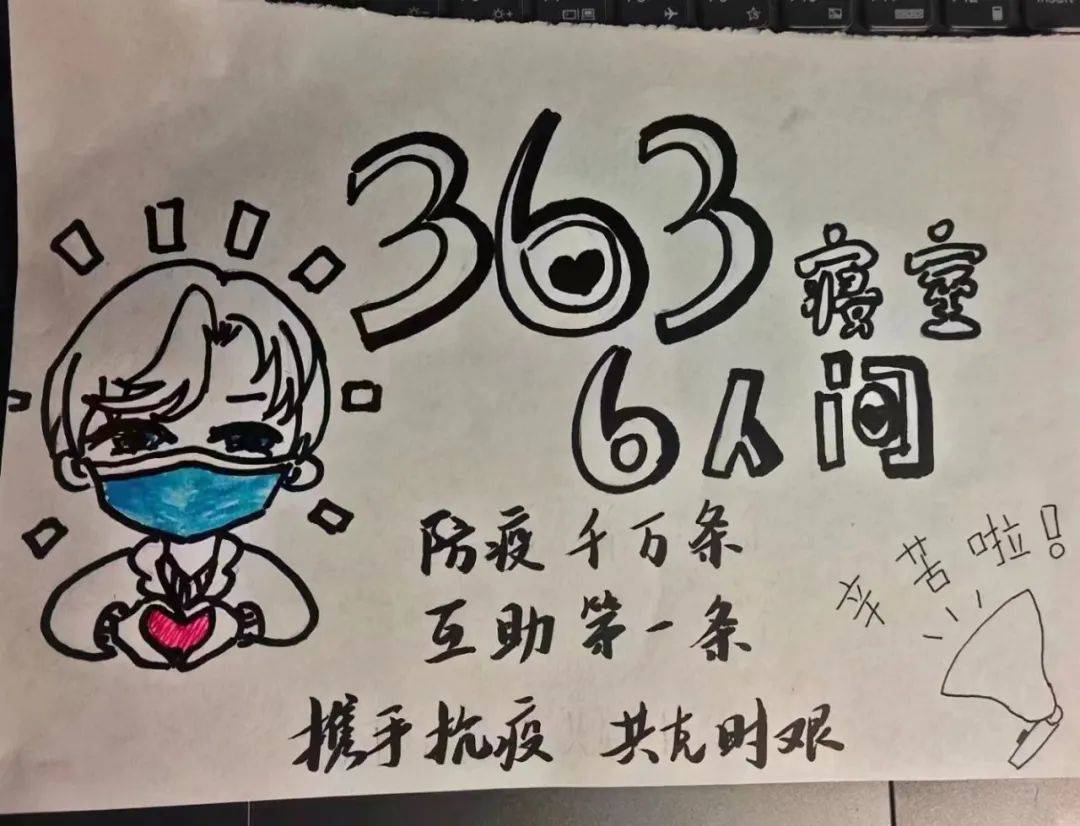 363寝室
6人间
防疫千万条
互助第一条
辛苦啦！
携手抗疫 共克时艰